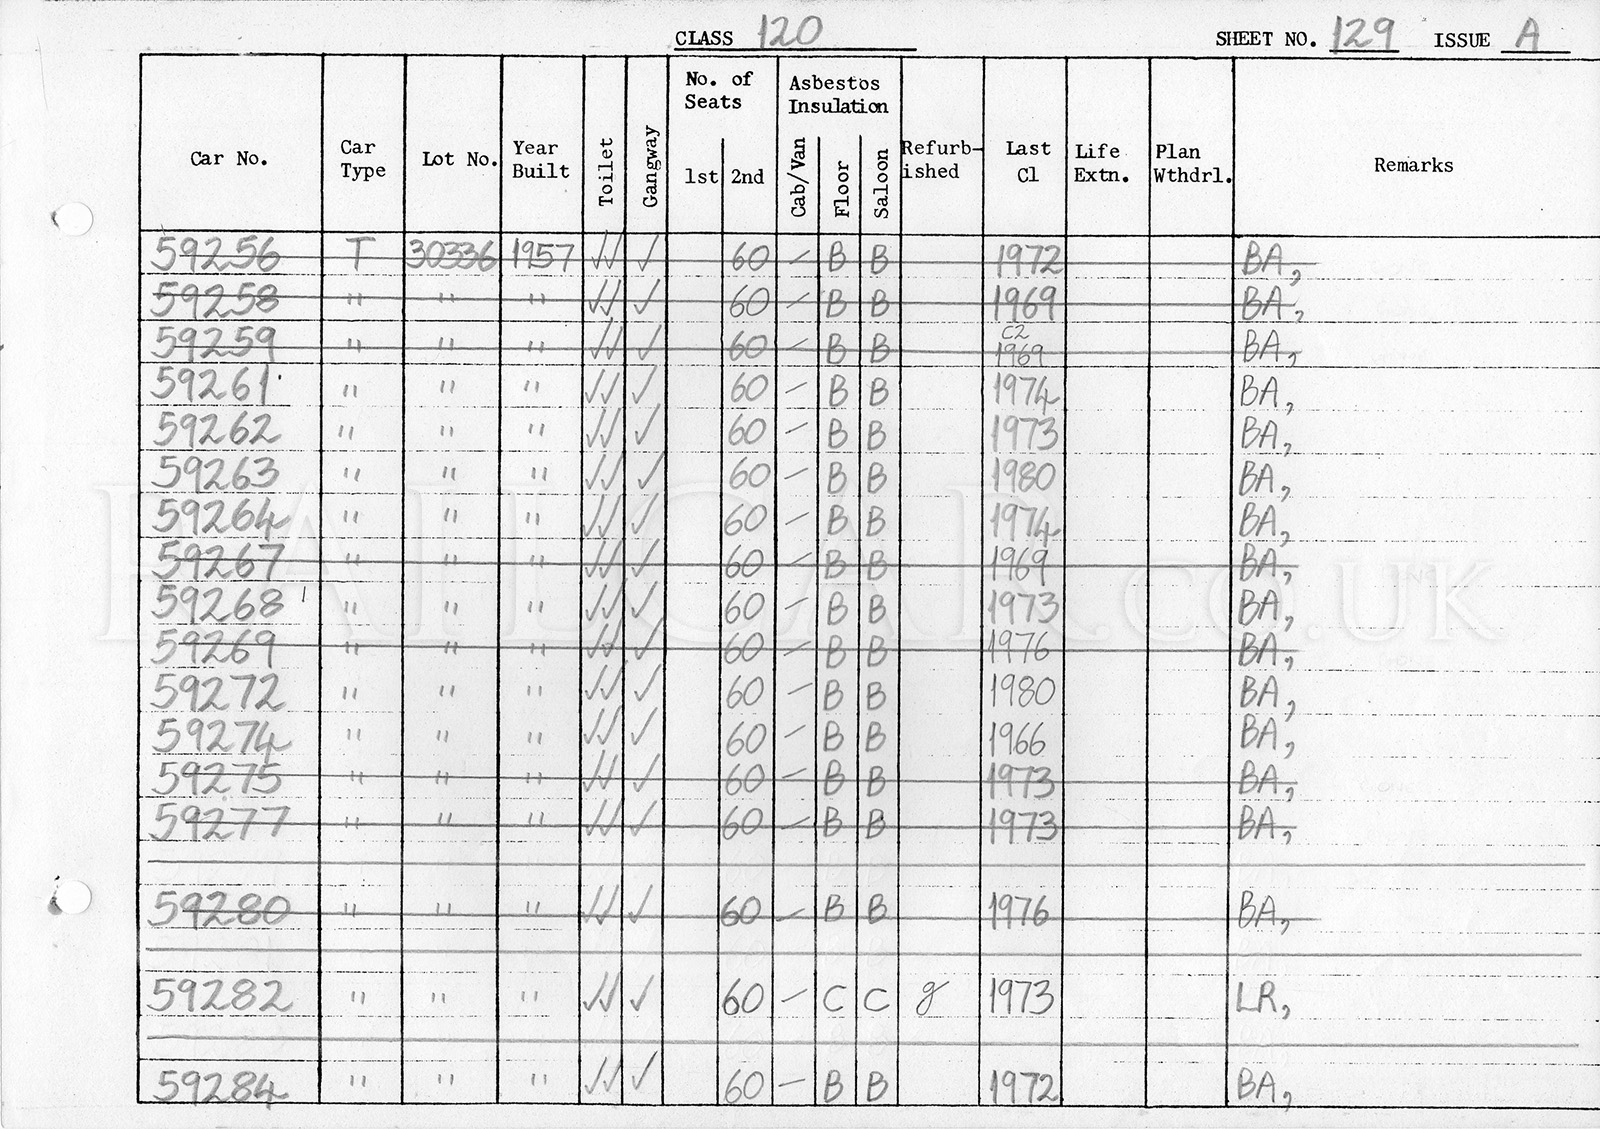 CLASS 120 SHEET NO. 129 ISSUE A
Car No. Car Type Lot No. Year Built Toilet Gangway No. of Seats 1st 2nd Asbestos Insulation Cab/Van Floor Saloon Refurb-ished Last Cl Life Extn. Plan Wthdrl. Remarks
59256 T 30336 1957 ✓✓ ✓ 60 — B B 1972 BA,
59258 " " " ✓✓ ✓ 60 — B B 1969 BA,
59259 " " " ✓✓ ✓ 60 — B B C2 1969 BA,
59261 " " " ✓✓ ✓ 60 — B B 1974 BA,
59262 " " " ✓✓ ✓ 60 — B B 1973 BA,
59263 " " " ✓✓ ✓ 60 — B B 1980 BA,
59264 " " " ✓✓ ✓ 60 — B B 1974 BA,
59267 " " " ✓✓ ✓ 60 — B B 1969 BA,
59268 " " " ✓✓ ✓ 60 — B B 1973 BA,
59269 " " " ✓✓ ✓ 60 — B B 1976 BA,
59272 " " " ✓✓ ✓ 60 — B B 1980 BA,
59274 " " " ✓✓ ✓ 60 — B B 1966 BA,
59275 " " " ✓✓ ✓ 60 — B B 1973 BA,
59277 " " " ✓✓ ✓ 60 — B B 1973 BA,
59280 " " " ✓✓ ✓ 60 — B B 1976 BA,
59282 " " " ✓✓ ✓ 60 — C C g 1973 LR,
59284 " " " ✓✓ ✓ 60 — B B 1972 BA,
RAILCAR.CO.UK